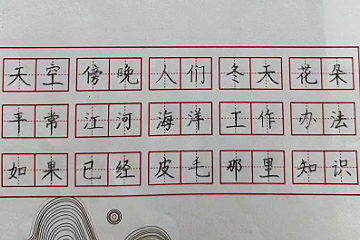 天空 傍晚 人们 冬天 花朵
平常 江河 海洋 工作 办法
如果 已经 皮毛 那里 知识